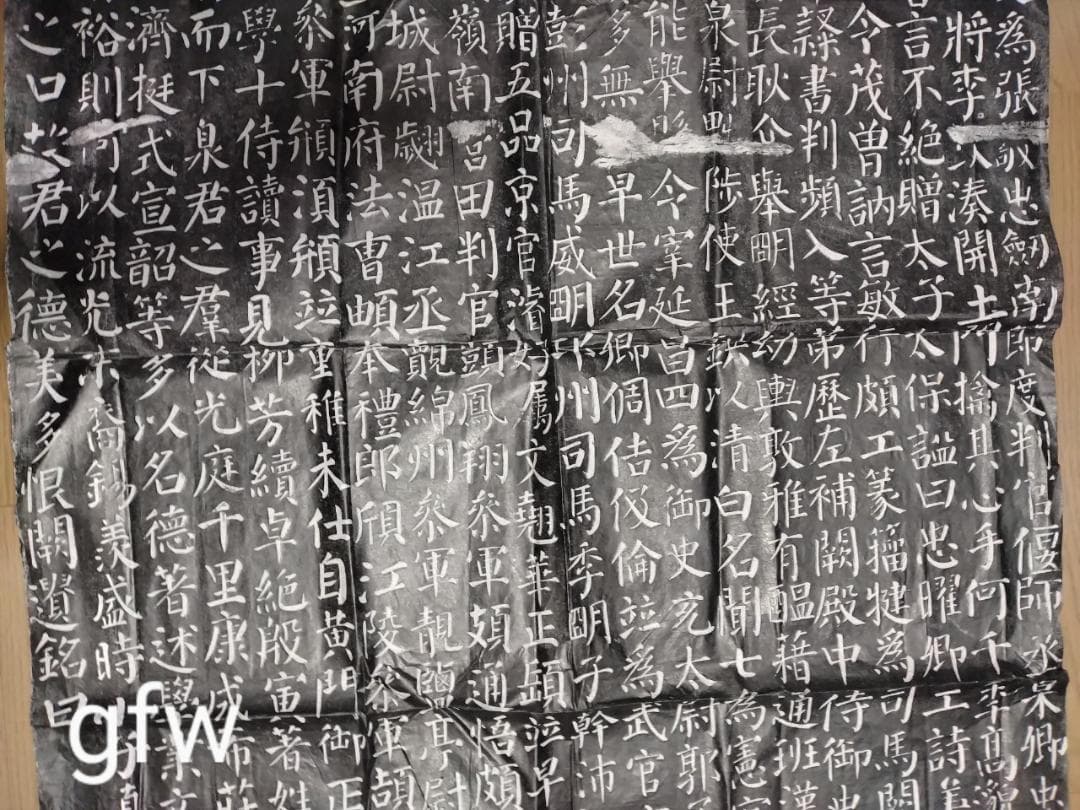 爲張敬忠劒南節度判官偃師丞杲卿忠
將李湊開土門擒其心手何千年高邈
言不絕贈太子太保謚曰忠曜卿工詩
今茂曾訥言敏行頗工篆籀犍爲司馬闕
隸書判頻入等第歷左補闕殿中侍御
長耿介舉眀經幼輿敦雅有醖藉通班漢
泉尉陟使王鉷以清白名聞七爲憲官
能舉今宰延昌四爲御史充太尉郭子
多無早世名卿倜佶伋倫竝爲武官
彭州司馬威眀州司馬季眀子幹沛
贈五品京官濬好屬文翹華正頤竝早
嶺南營田判官頭鳳翔參軍頗通悟頗
城尉翽温江丞覿綿州參軍靚鹽亭尉
河南府法曹頔奉禮郎頎江陵參軍頡
參軍頩湏頩竝童稚未仕自黃門御正
學十侍讀事見柳芳續卓絕殷寅著姓
而下泉君之羣從光庭千里康成希莊
濟挺式宣韶等多以名德著述學業文
裕則何以流光末裔錫羨盛時
之口故君之德美多恨闕遺銘曰
gfw